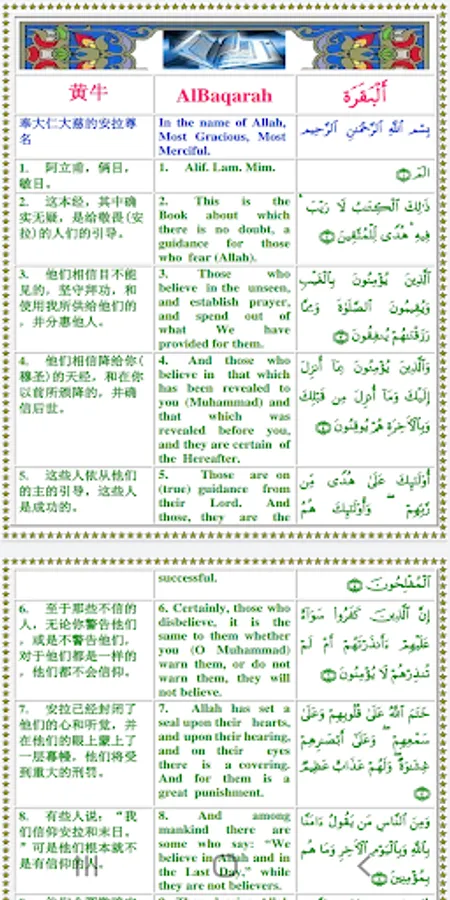 黄牛
AlBaqarah
أَلْبَقَرَة
奉大仁大慈的安拉尊
名
In the name of Allah,
Most Gracious, Most
Merciful.
بِسْمِ ٱللَّهِ ٱلرَّحْمَٰنِ ٱلرَّحِيمِ
1. 阿立甫，俩目，
敏目。
1. Alif. Lam. Mim.
الٓمٓ ١
2. 这本经，其中确
实无疑，是给敬畏(安
拉)的人们的引导。
2. This is the
Book about which
there is no doubt, a
guidance for those
who fear (Allah).
ذَٰلِكَ ٱلْكِتَٰبُ لَا رَيْبَ ۛ
فِيهِ ۛ هُدًى لِّلْمُتَّقِينَ ٢
3. 他们相信目不能
见的，坚守拜功，和
使用我所供给他们的
，并分惠他人。
3. Those who
believe in the unseen,
and establish prayer,
and spend out of
what We have
provided for them.
ٱلَّذِينَ يُؤْمِنُونَ بِٱلْغَيْبِ
وَيُقِيمُونَ ٱلصَّلَوٰةَ وَمِمَّا
رَزَقْنَٰهُمْ يُنفِقُونَ ٣
4. 他们相信降给你(
穆圣)的天经，和在你
以前所颁降的，并确
信后世。
4. And those who
believe in that which
has been revealed to
you (Muhammad) and
that which was
revealed before you,
and they are certain of
the Hereafter.
وَٱلَّذِينَ يُؤْمِنُونَ بِمَآ أُنزِلَ
إِلَيْكَ وَمَآ أُنزِلَ مِن قَبْلِكَ
وَبِٱلْءَاخِرَةِ هُمْ يُوقِنُونَ ٤
5. 这些人依从他们
的主的引导，这些人
是成功的。
5. Those are on
(true) guidance from
their Lord. And
those, they are the
أُو۟لَٰٓئِكَ عَلَىٰ هُدًى مِّن
رَّبِّهِمْ ۖ وَأُو۟لَٰٓئِكَ هُمُ
successful.
ٱلْمُفْلِحُونَ ٥
6. 至于那些不信的
人，无论你警告他们
，或是不警告他们，
对于他们都是一样的
，他们都不会信仰。
6. Certainly, those who
disbelieve, it is the
same to them whether
you (O Muhammad)
warn them, or do not
warn them, they will
not believe.
إِنَّ ٱلَّذِينَ كَفَرُوا۟ سَوَآءٌ
عَلَيْهِمْ ءَأَنذَرْتَهُمْ أَمْ لَمْ
تُنذِرْهُمْ لَا يُؤْمِنُونَ ٦
7. 安拉已经封闭了
他们的心和听觉，并
在他们的眼上蒙上了
一层幕幔，他们将受
到重大的刑罚。
7. Allah has set a
seal upon their hearts,
and upon their hearing,
and on their eyes
there is a covering.
And for them is a
great punishment.
خَتَمَ ٱللَّهُ عَلَىٰ قُلُوبِهِمْ وَعَلَىٰ
سَمْعِهِمْ ۖ وَعَلَىٰٓ أَبْصَٰرِهِمْ
غِشَٰوَةٌ ۖ وَلَهُمْ عَذَابٌ عَظِيمٌ
٧
8. 有些人说：“我
们信仰安拉和末日。
”可是他们根本就不
是有信仰的人。
8. And among
mankind there are
some who say: “We
believe in Allah and in
the Last Day,” while
they are not believers.
وَمِنَ ٱلنَّاسِ مَن يَقُولُ ءَامَنَّا
بِٱللَّهِ وَبِٱلْيَوْمِ ٱلْءَاخِرِ وَمَا هُم
بِمُؤْمِنِينَ ٨